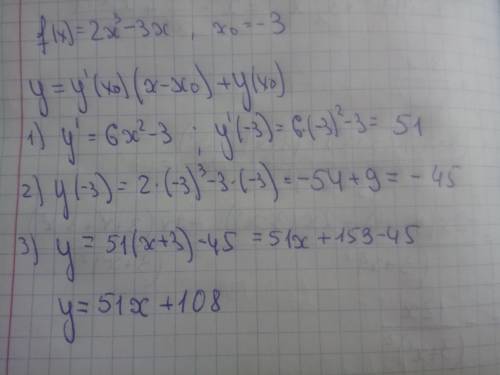 f(x)=2x³-3x , x₀=-3
y=y'(x₀)(x-x₀)+y(x₀)
1) y'=6x²-3 ; y'(-3)=6·(-3)²-3=51
2) y(-3)=2·(-3)³-3·(-3)=-54+9=-45
3) y=51(x+3)-45=51x+153-45
y=51x+108